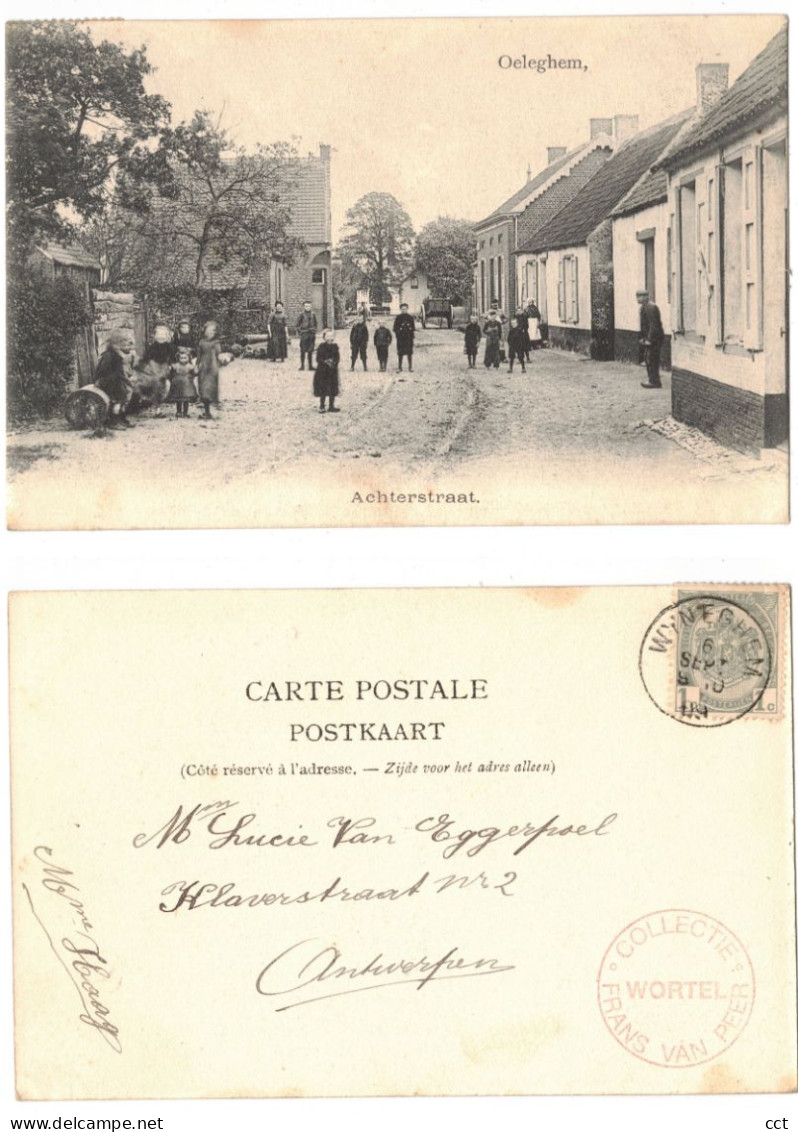 Oeleghem,
Achterstraat.
CARTE POSTALE
POSTKAART
(Côté réservé à l'adresse. — Zijde voor het adres alleen)
WYNEGHEM
6
SEPT
1c 1c
Lucie Van Eggerpoel
Klaverstraat nr 2
Antwerpen
Mme Haag
COLLECTIE
WORTEL
FRANS VAN PEER
cct
delcampe.net